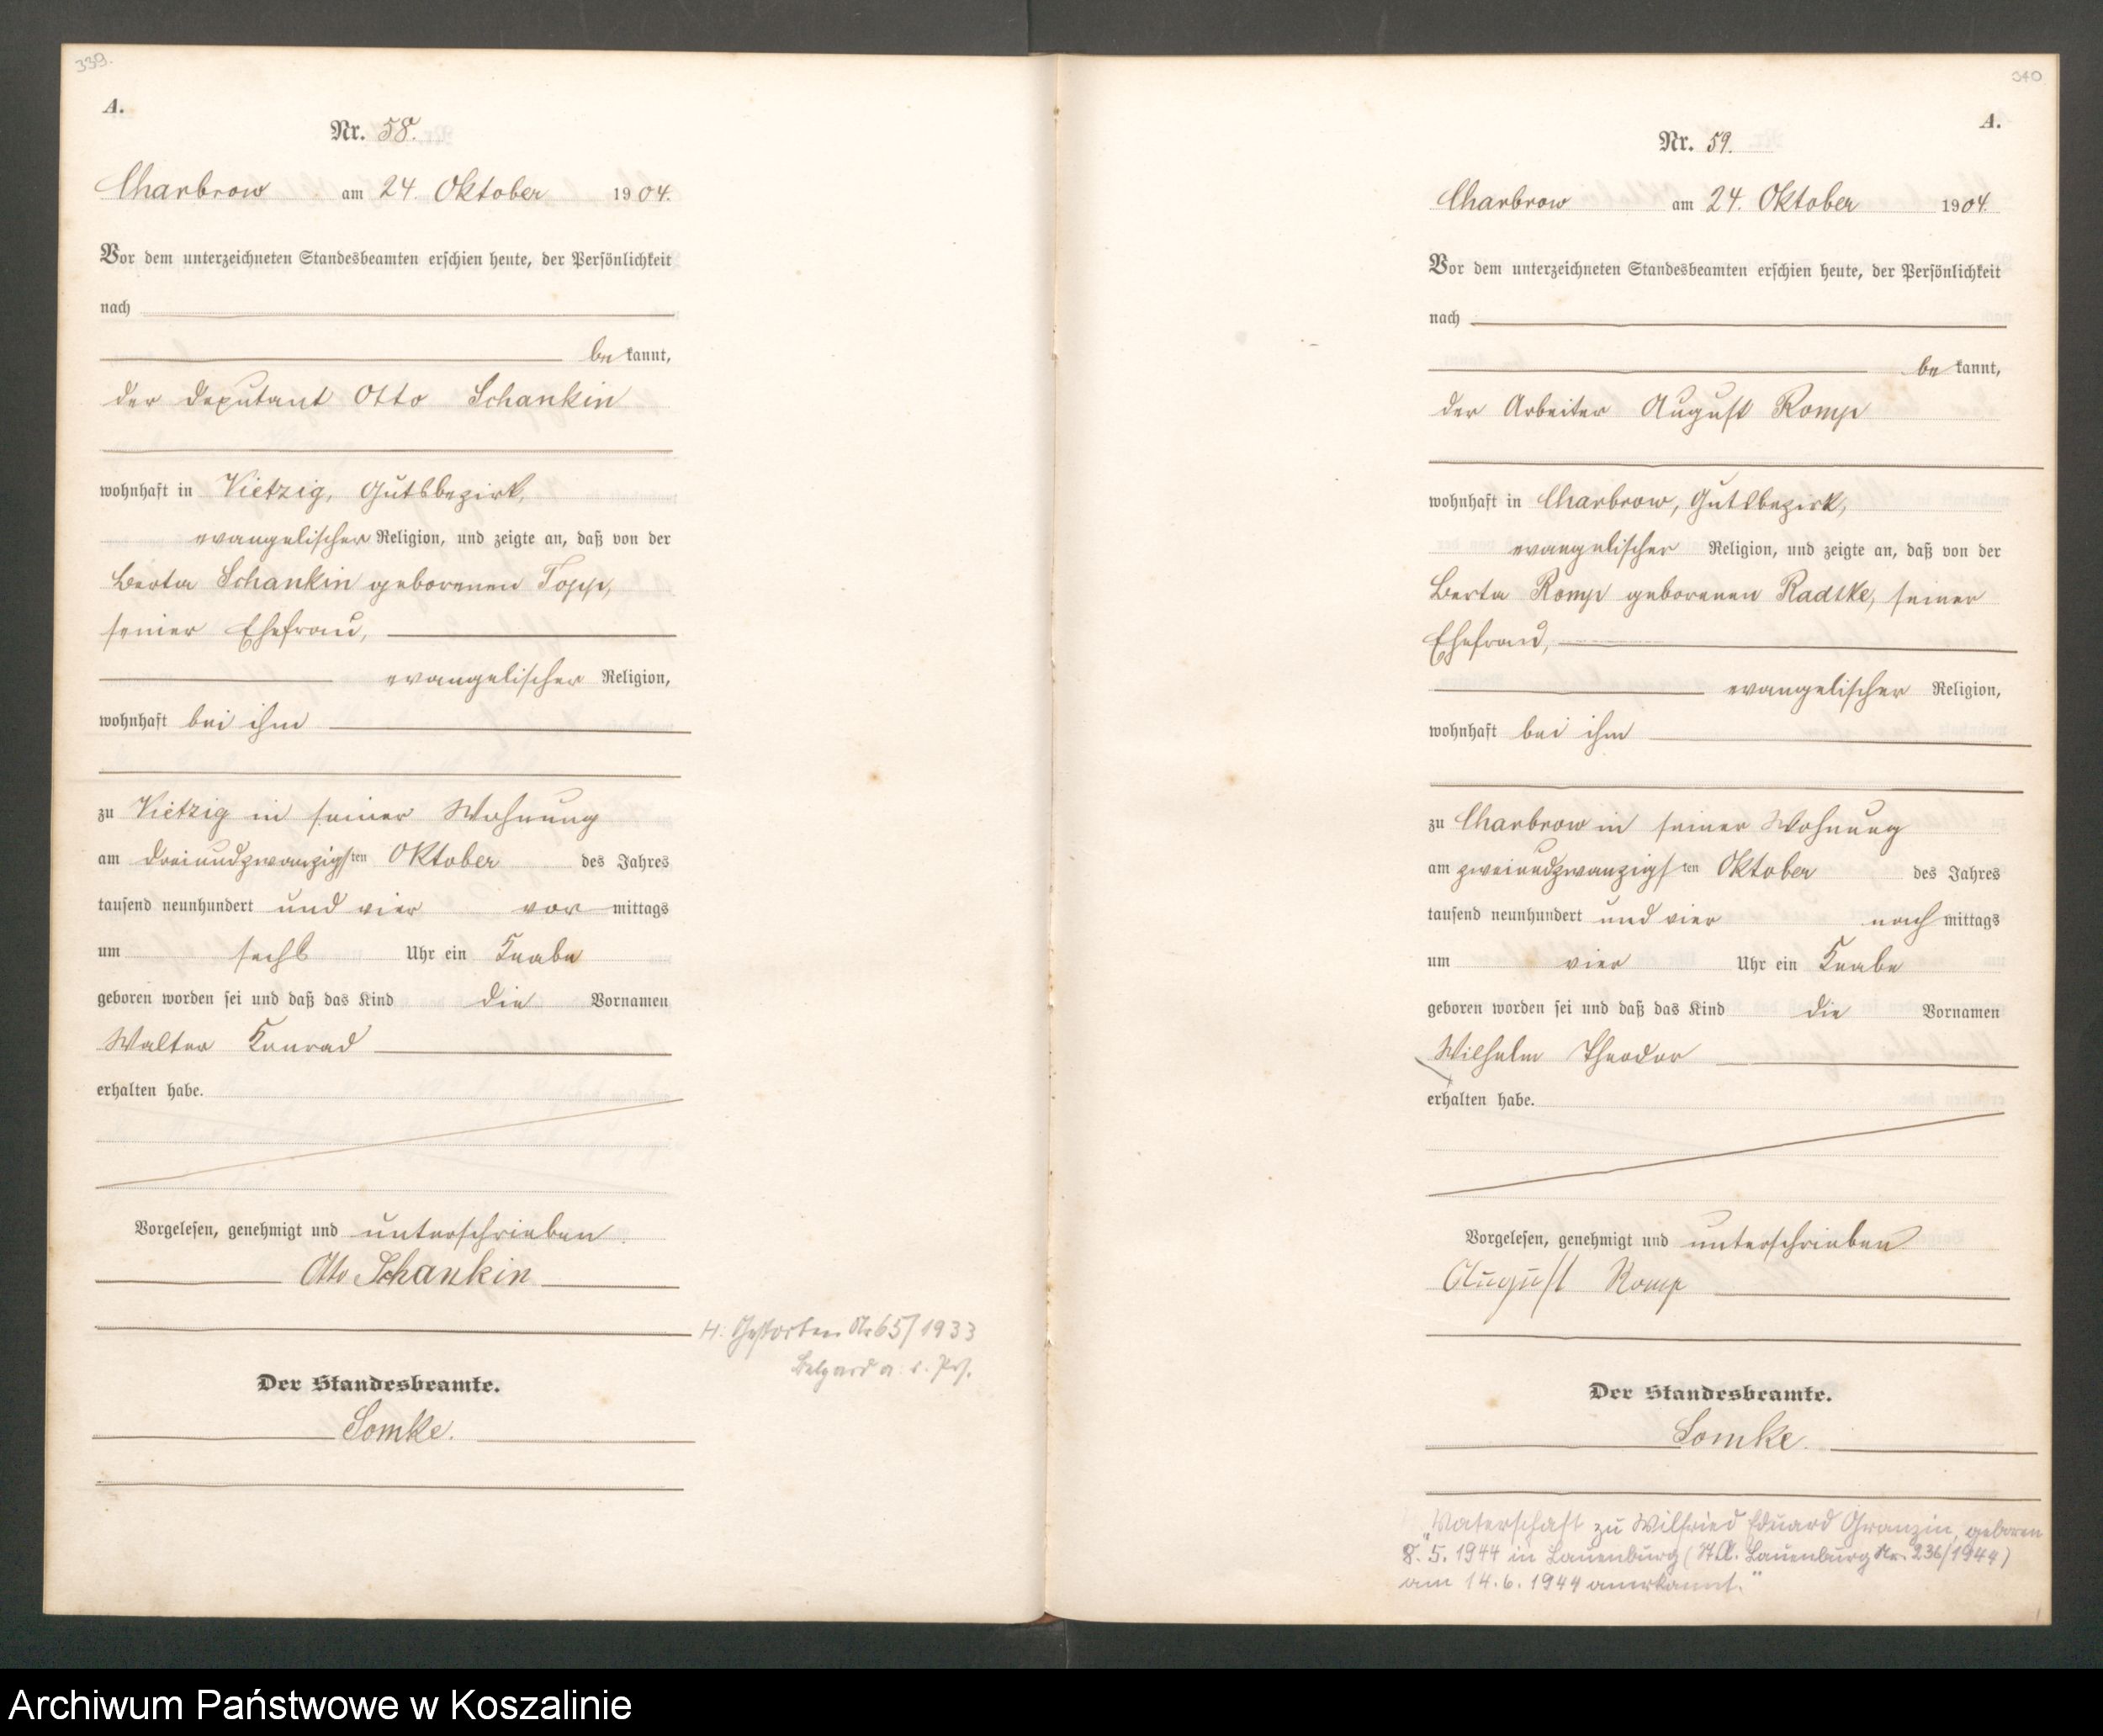 339.
A.
Nr. 58.
Charbrow am 24. Oktober 1904.
Vor dem unterzeichneten Standesbeamten erschien heute, der Persönlichkeit
nach
be kannt,
der Deputant Otto Schankin
wohnhaft in Vietzig, Gutsbezirk,
evangelischer Religion, und zeigte an, daß von der
Berta Schankin geborenen Topp,
seiner Ehefrau,
evangelischer Religion,
wohnhaft bei ihm
zu Vietzig in seiner Wohnung
am dreiundzwanzigsten Oktober des Jahres
tausend neunhundert und vier vor mittags
um sechs Uhr ein Knabe
geboren worden sei und daß das Kind die Vornamen
Walter Konrad
erhalten habe.
Vorgelesen, genehmigt und unterschrieben.
Otto Schankin
H: Gestorben Nr 65/1933
Belgard a. d. Pers.
Der Standesbeamte.
Somke.
340
A.
Nr. 59.
Charbrow am 24. Oktober 1904.
Vor dem unterzeichneten Standesbeamten erschien heute, der Persönlichkeit
nach
be kannt,
der Arbeiter August Romp
wohnhaft in Charbrow, Gutsbezirk,
evangelischer Religion, und zeigte an, daß von der
Berta Romp geborenen Radtke, seiner
Ehefrau,
evangelischer Religion,
wohnhaft bei ihm
zu Charbrow in seiner Wohnung
am zweiundzwanzigsten Oktober des Jahres
tausend neunhundert und vier nach mittags
um vier Uhr ein Knabe
geboren worden sei und daß das Kind die Vornamen
Wilhelm Theodor
erhalten habe.
Vorgelesen, genehmigt und unterschrieben
August Romp
Der Standesbeamte.
Somke.
"Vaterschaft zu Wilfried Eduard Granzin, geboren
8. 5. 1944 in Lauenburg (St.A. Lauenburg Nr. 236/1944)
am 14. 6. 1944 anerkannt."
Archiwum Państwowe w Koszalinie